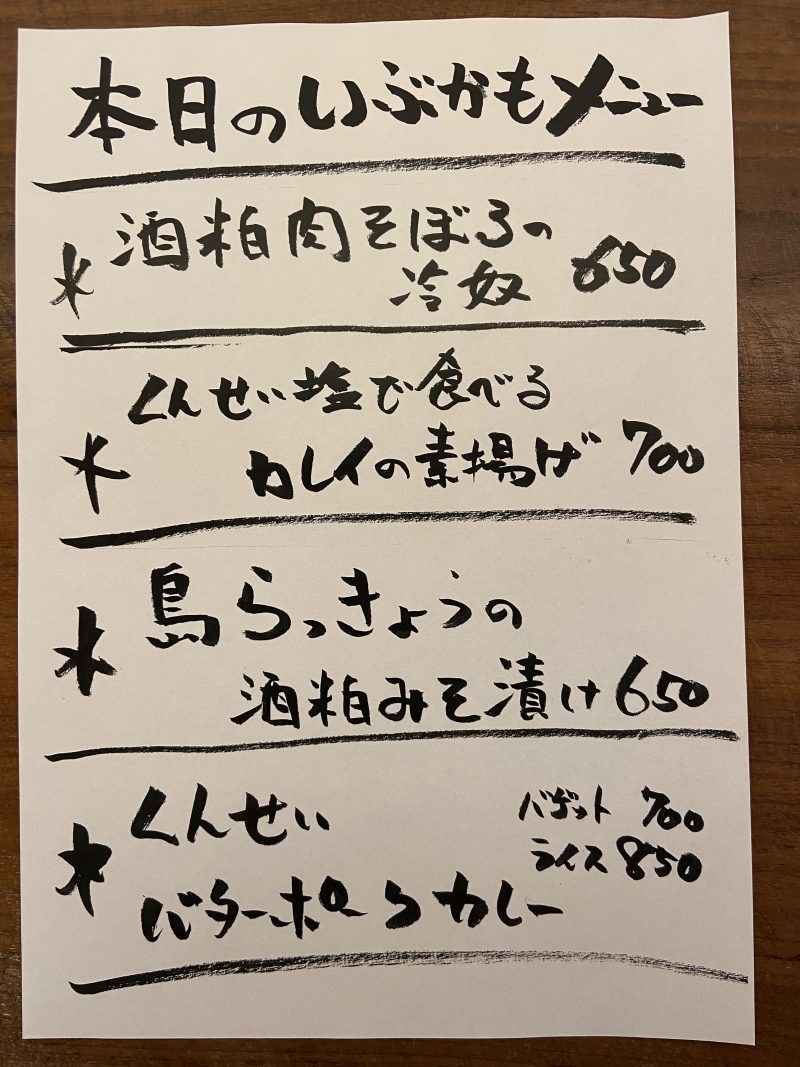 本日のいぶかもメニュー
酒粕肉そぼろの
冷奴 650
くんせい塩で食べる
カレイの素揚げ 700
島らっきょうの
酒粕みそ漬け 650
くんせい
バゲット 700
ライス 850
バターポークカレー